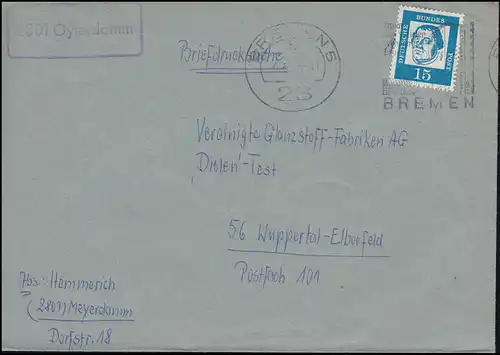 2801 Oyterdamm
Briefdrucksache
BREMEN 5
23
DEUTSCHE BUNDESPOST
15
BREMEN
Vereinigte Glanzstoff-Fabriken AG
Diolen'-Test
56 Wuppertal-Elberfeld
Postfach 101
Abs.: Hemmerich
(2801) Meyerdamm
Dorfstr. 18